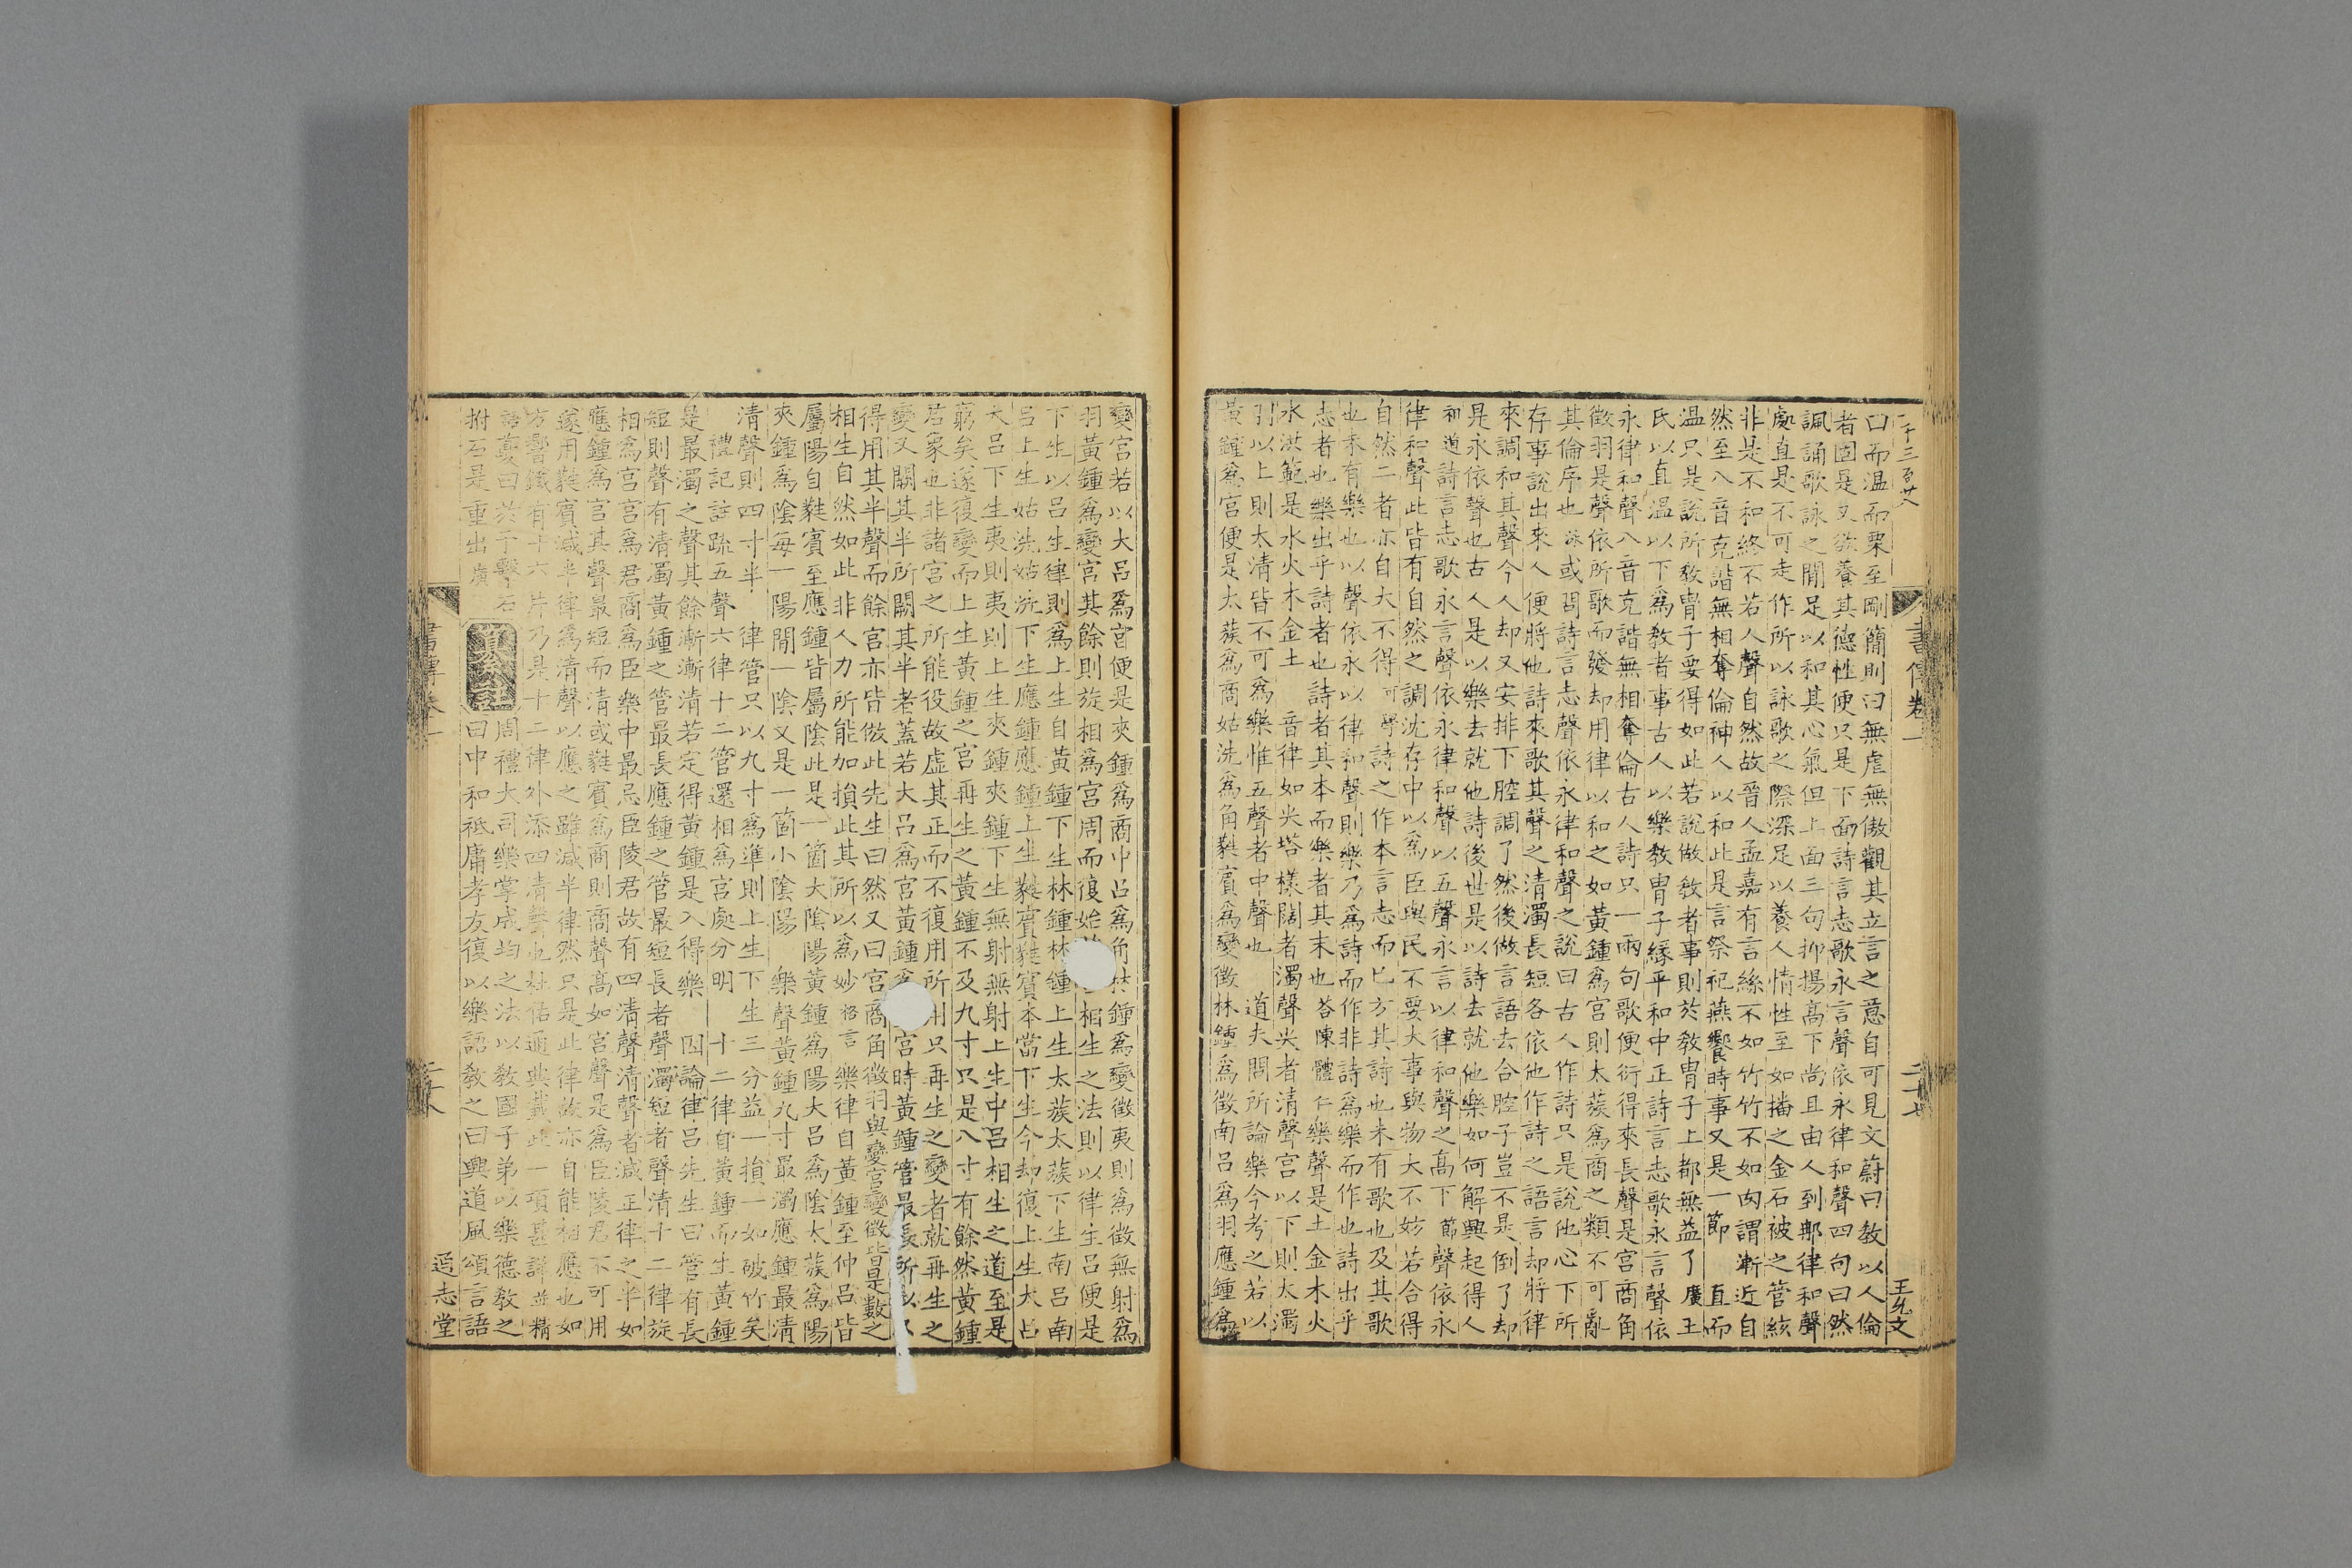 二千三百廿八
書傳卷一
二十七
王允文
曰而温而栗至剛簡則曰無虐無傲觀其立言之意自可見文蔚曰教以人倫
者固是又欲養其德性便只是下面詩言志歌永言聲依永律和聲四句曰然
諷誦歌詠之閒足以和其心氣但上面三句抑揚髙下尚且由人到那律和聲
處直是不可走作所以詠歌之際深足以養人情性至如播之金石被之管絃
非是不和終不若人聲自然故晉人孟嘉有言絲不如竹竹不如肉謂漸近自
然至八音克諧無相奪倫神人以和此是言祭祀燕饗時事又是一節 直而
温只是說所教胄子要得如此若說做教者事則於教胄子上都無益了廣王
氏以直温以下爲教者事古人以樂教胄子緣平和中正詩言志歌永言聲依
永律和聲八音克諧無相奪倫古人詩只一兩句歌便衍得來長聲是宮商角
徵羽是聲依所歌而發却用律以和之如黄鍾爲宮則太蔟爲商之類不可亂
其倫序也 或問詩言志聲依永律和聲之說曰古人作詩只是說他心下所
存事說出來人便將他詩來歌其聲之清濁長短各依他作詩之語言却將律
來調和其聲今人却又安排下腔調了然後做言語去合腔子豈不是倒了却
是永依聲也古人是以樂去就他詩後世是以詩去就他樂如何解興起得人
和道詩言志歌永言聲依永律和聲以五聲永言以律和聲之髙下節聲依永
律和聲此皆有自然之調沈存中以爲臣與民不要大事與物大不妨若合得
自然二者亦自大不得可學詩之作本言志而已方其詩也未有歌也及其歌
也未有樂也以聲依永以律和聲則樂乃爲詩而作非詩爲樂而作也詩出乎
志者也樂出乎詩者也詩者其本而樂者其末也答陳體仁樂聲是土金木火
水洪範是水火木金土 音律如尖塔樣闊者濁聲尖者清聲宮以下則太濁
羽以上則太清皆不可爲樂惟五聲者中聲也 道夫問所論樂今考之若以
黄鍾爲宮便是太蔟爲商姑洗爲角蕤賓爲變徵林鍾爲徵南呂爲羽應鍾爲
變宮若以大呂爲宮便是夾鍾爲商中呂爲角林鍾爲變徵夷則爲徵無射爲
羽黄鍾爲變宮其餘則旋相爲宮周而復始 相生之法則以律生呂便是
下生以呂生律則爲上生自黄鍾下生林鍾林鍾上生太蔟太蔟下生南呂南
呂上生姑洗姑洗下生應鍾應鍾上生蕤賓蕤賓本當下生今却復上生大呂
大呂下生夷則夷則上生夾鍾夾鍾下生無射無射上生中呂相生之道至是
窮矣遂復變而上生黄鍾之宮再生之黄鍾不及九寸只是八寸有餘然黄鍾
君象也非諸宮之所能役故虛其正而不復用所用只再生之變者就再生之
變又闕其半所闕其半者蓋若大呂爲宮黄鍾爲 宮時黄鍾管最長所以只
得用其半聲而餘宮亦皆倣此先生曰然又曰宮商角徵羽與變宮變徵皆是數之
相生自然如此非人力所能加損此其所以爲妙 樂律自黄鍾至仲呂皆
屬陽自蕤賓至應鍾皆屬陰此是一箇大陰陽黄鍾爲陽大呂爲陰太蔟爲陽
夾鍾爲陰每一陽閒一陰又是一箇小陰陽 樂聲黄鍾九寸最濁應鍾最清
清聲則四寸半 律管只以九寸爲準則上生下生三分益一損一如破竹矣
禮記註疏五聲六律十二管還相爲宮處分明 十二律自黄鍾而生黄鍾
是最濁之聲其餘漸漸清若定得黄鍾是入得樂 因論律呂先生曰管有長
短則聲有清濁黄鍾之管最長應鍾之管最短長者聲濁短者聲清十二律旋
相爲宮宮爲君商爲臣樂中最忌臣陵君故有四清聲清聲者減正律之半如
應鍾爲宮其聲最短而清或蕤賓爲商則商聲髙如宮聲是爲臣陵君不可用
遂用蕤賓減半律爲清聲以應之雖減半律然只是此律故亦自能相應也如
方響鐵有十六片乃是十二律外添四清聲也杜佑通典載此一項甚詳並精
語 夔曰於予擊石 周禮大司樂掌成均之法以教國子弟以樂德教之
拊石是重出廣 曰中和祗庸孝友復以樂語教之曰興道風頌言語
書傳卷一
二十八
通志堂